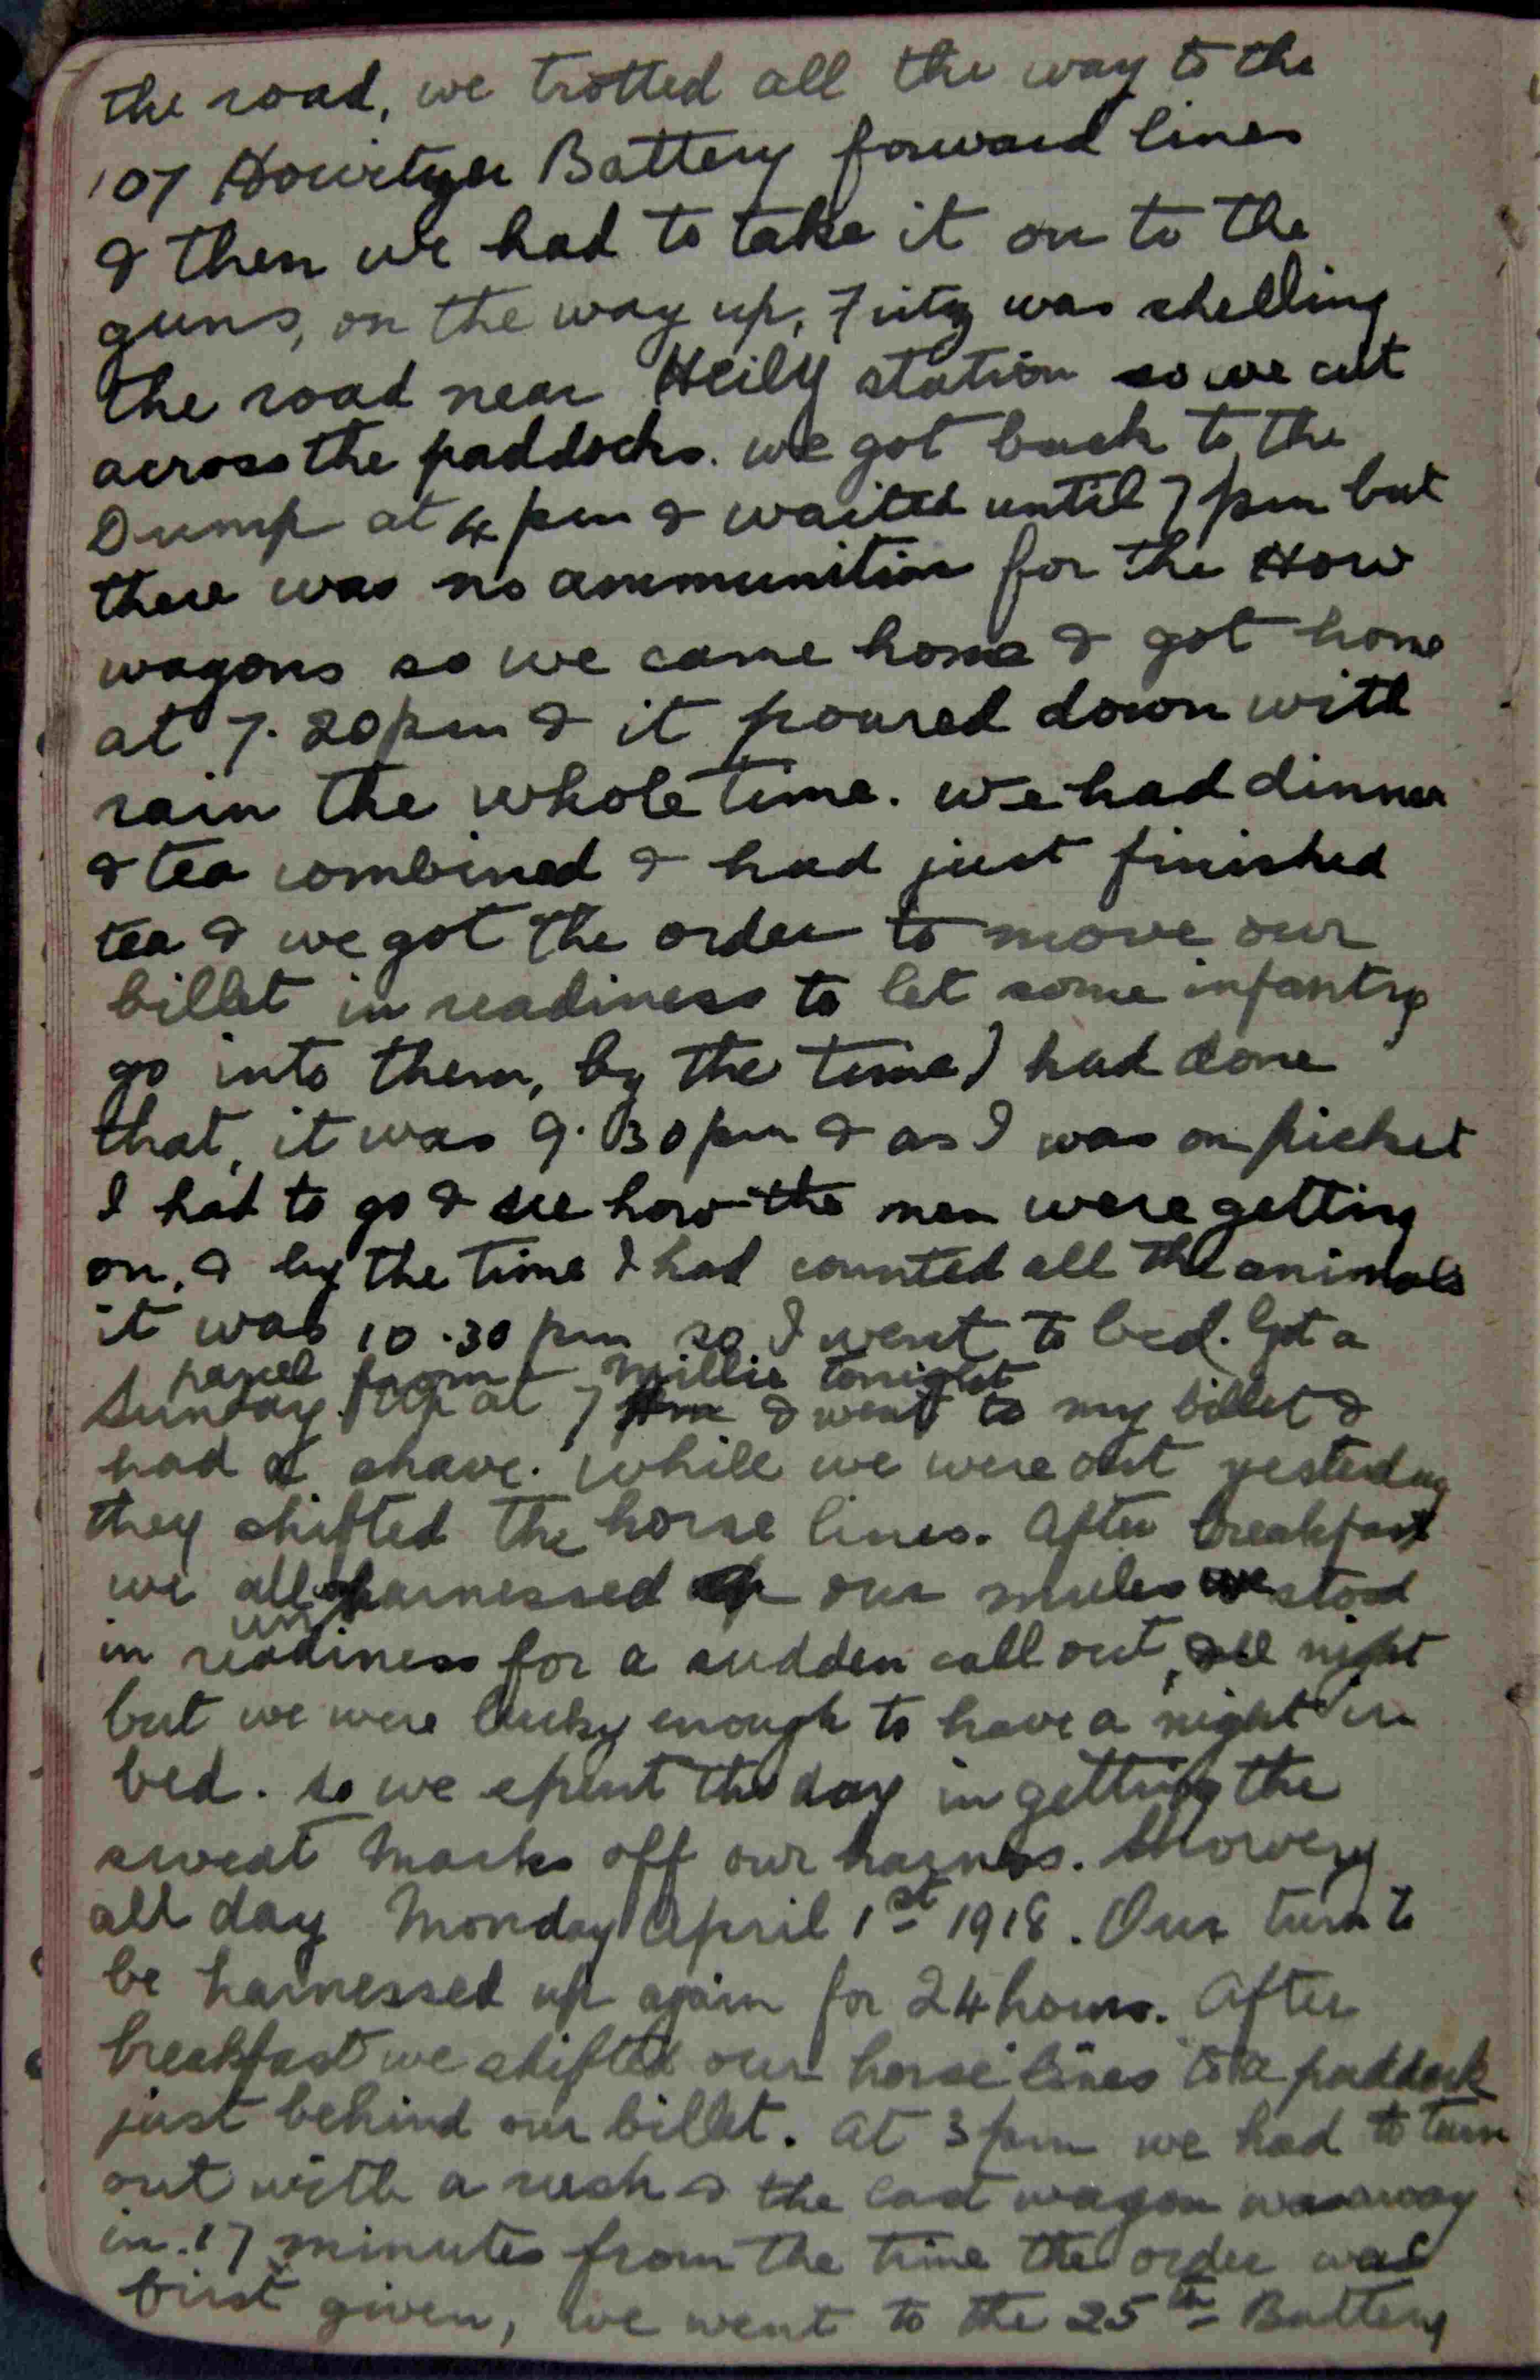 the road, we trotted all the way to the
107 Howitzer Battery forward lines
& then we had to take it on to the
guns, on the way up, Fritz was shelling
the road near Heily station so we cut
across the paddocks. we got back to the
Dump at 4 pm & waited until 7 pm but
there was no ammunition for the How
wagons so we came home & got home
at 7.20 pm & it poured down with
rain the whole time. we had dinner
& tea combined & had just finished
tea & we got the order to move our
billet in readiness to let some infantry
go into them, by the time I had done
that, it was 9.30 pm & as I was on picket
I had to go & see how the men were getting
on, & by the time I had counted all the animals
it was 10.30 pm so I went to bed. Got a
parcel from Millie tonight
Sunday. Up at 7 & went to my billet &
had a shave. While we were out yesterday
they shifted the horse lines. After breakfast
we all unharnessed our mules we stood
in readiness for a sudden call out, all night
but we were lucky enough to have a night in
bed. so we spent the day in getting the
sweat marks off our harness. Showery
all day Monday April 1st 1918. Our turn to
be harnessed up again for 24 hours. After
breakfast we shifted our horse lines to a paddock
just behind our billet. At 3 pm we had to turn
out with a rush & the last wagon was away
in 17 minutes from the time the order was
first given, we went to the 25th Battery